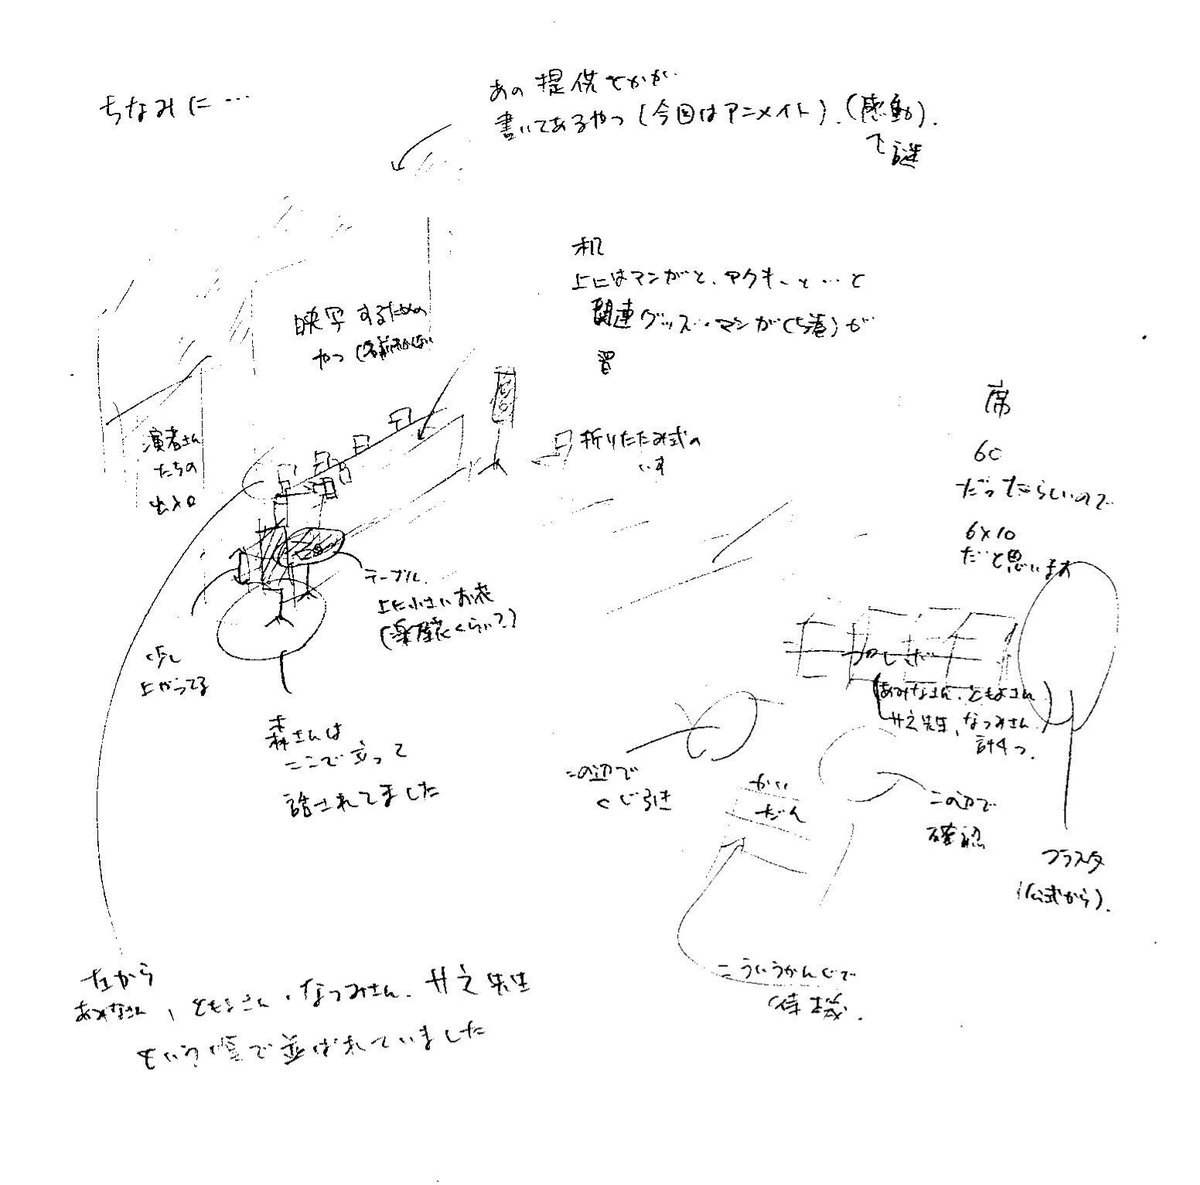 ちなみに…
あの提供とかが
書いてあるやつ(今回はアニメイト).(感動).
で謎
机
上にはマンガと、アクキーと…と
関連グッズ・マンガ(5巻)が
置
映写するための
やつ
演者さん
たちの
出入口
折りたたみ式の
いす
席
60
だったらしいので
6×10
だと思います
テーブル
上に小さいお花
(薬瓶くらい?)
少し
上がってる
森さんは
ここで立って
話されてました
(あみなさん、ともよさん
サ之先生、なつみさん
計4つ.
この辺で
くじ引き
かい
だん
この辺で
確認
フラスタ
(公式から).
こういうかんじで
待機.
左から
あみなさん、ともよさん、なつみさん、サ之先生
という順で並ばれていました